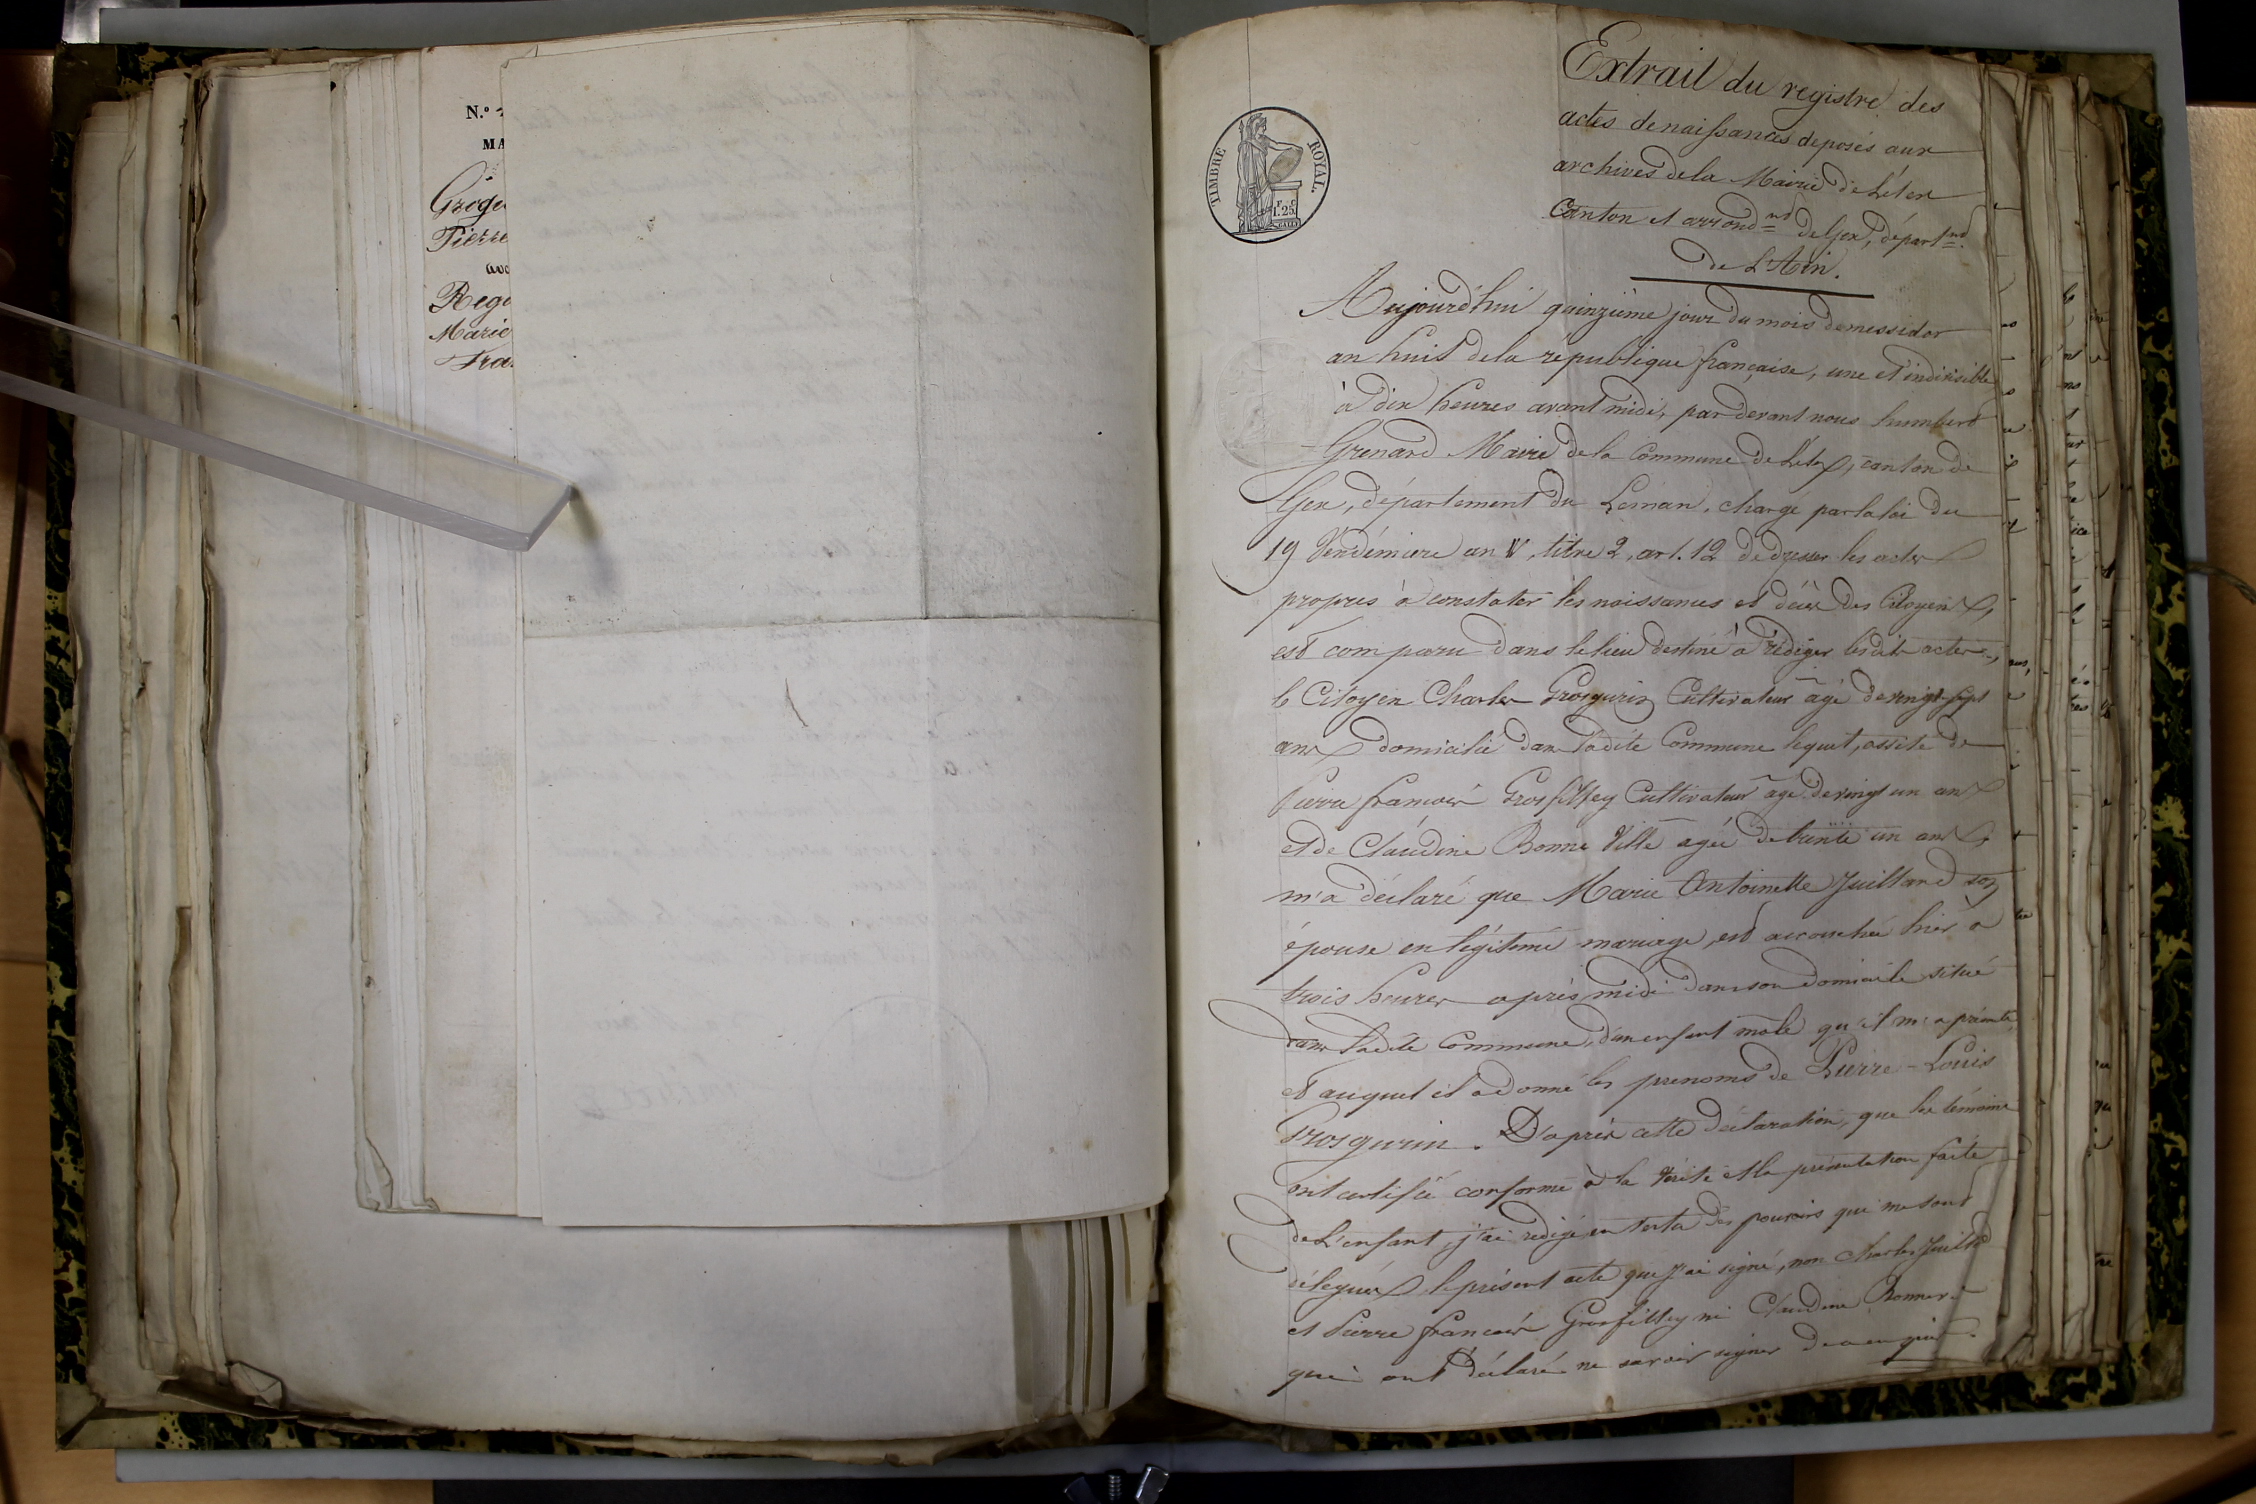 N.º
MA
Grogu
Pierre
avec
Rega
Marie
Fra
TIMBRE ROYAL.
1.25
Extrait du registre des
actes de naissances déposés aux
archives de la Mairie de Lélex
Canton et arrond.nt de Gex, départ.nt
de L'Ain.
Aujourd'hui quinzième jour du mois de messidor
an huit de la république française, une et indivisible
à dix heures avant midi, par devant nous humbert
Grenard Maire de la Commune de Lélex, canton de
Gex, département du Léman, chargé par la loi du
19 Vendémiere an V, titre 2, art. 12 de dresser les actes
propres à constater les naissances et décès des Citoyens,
est comparu dans le lieu destiné à rédiger lesdits actes,
le Citoyen Charles Grosgurin Cultivateur âgé de vingt-sept
ans domicilié dans ladite Commune lequel, assisté de
Pierre françois Grosfilley Cultivateur âgé de vingt un ans
et de Claudine Bonne Ville agée de trente un ans,
m'a déclaré que Marie Antoinette Juilland son
épouse en légitime mariage, est accouchée hier à
trois heures après midi dans son domicile situé
dans ladite Commune, d'un enfant mâle qu'il m'a présenté,
et auquel il a donné les prenoms de Pierre-Louis
Grosgurin. D'après cette déclaration, que les témoins
ont certifié conforme à la vérité et la présentation faite
de L'enfant, j'ai rédigé en vertu des pouvoirs qui me sont
délégués le présent acte que j'ai signé, non Charles
et Pierre françois Grosfilley ni Claudine
qui ont déclaré ne savoir signer de ce enquis.